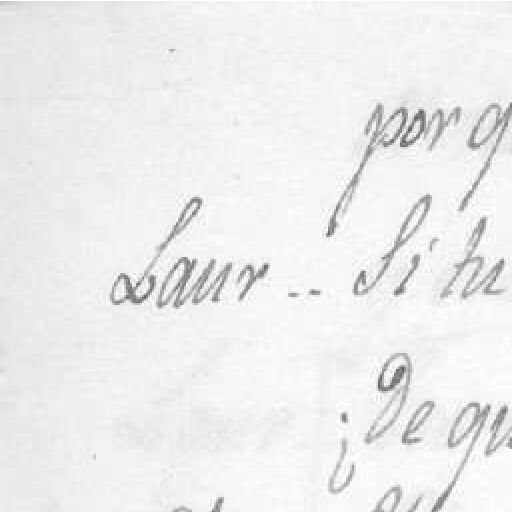 por q
Laur .. Si tu
¿De qu